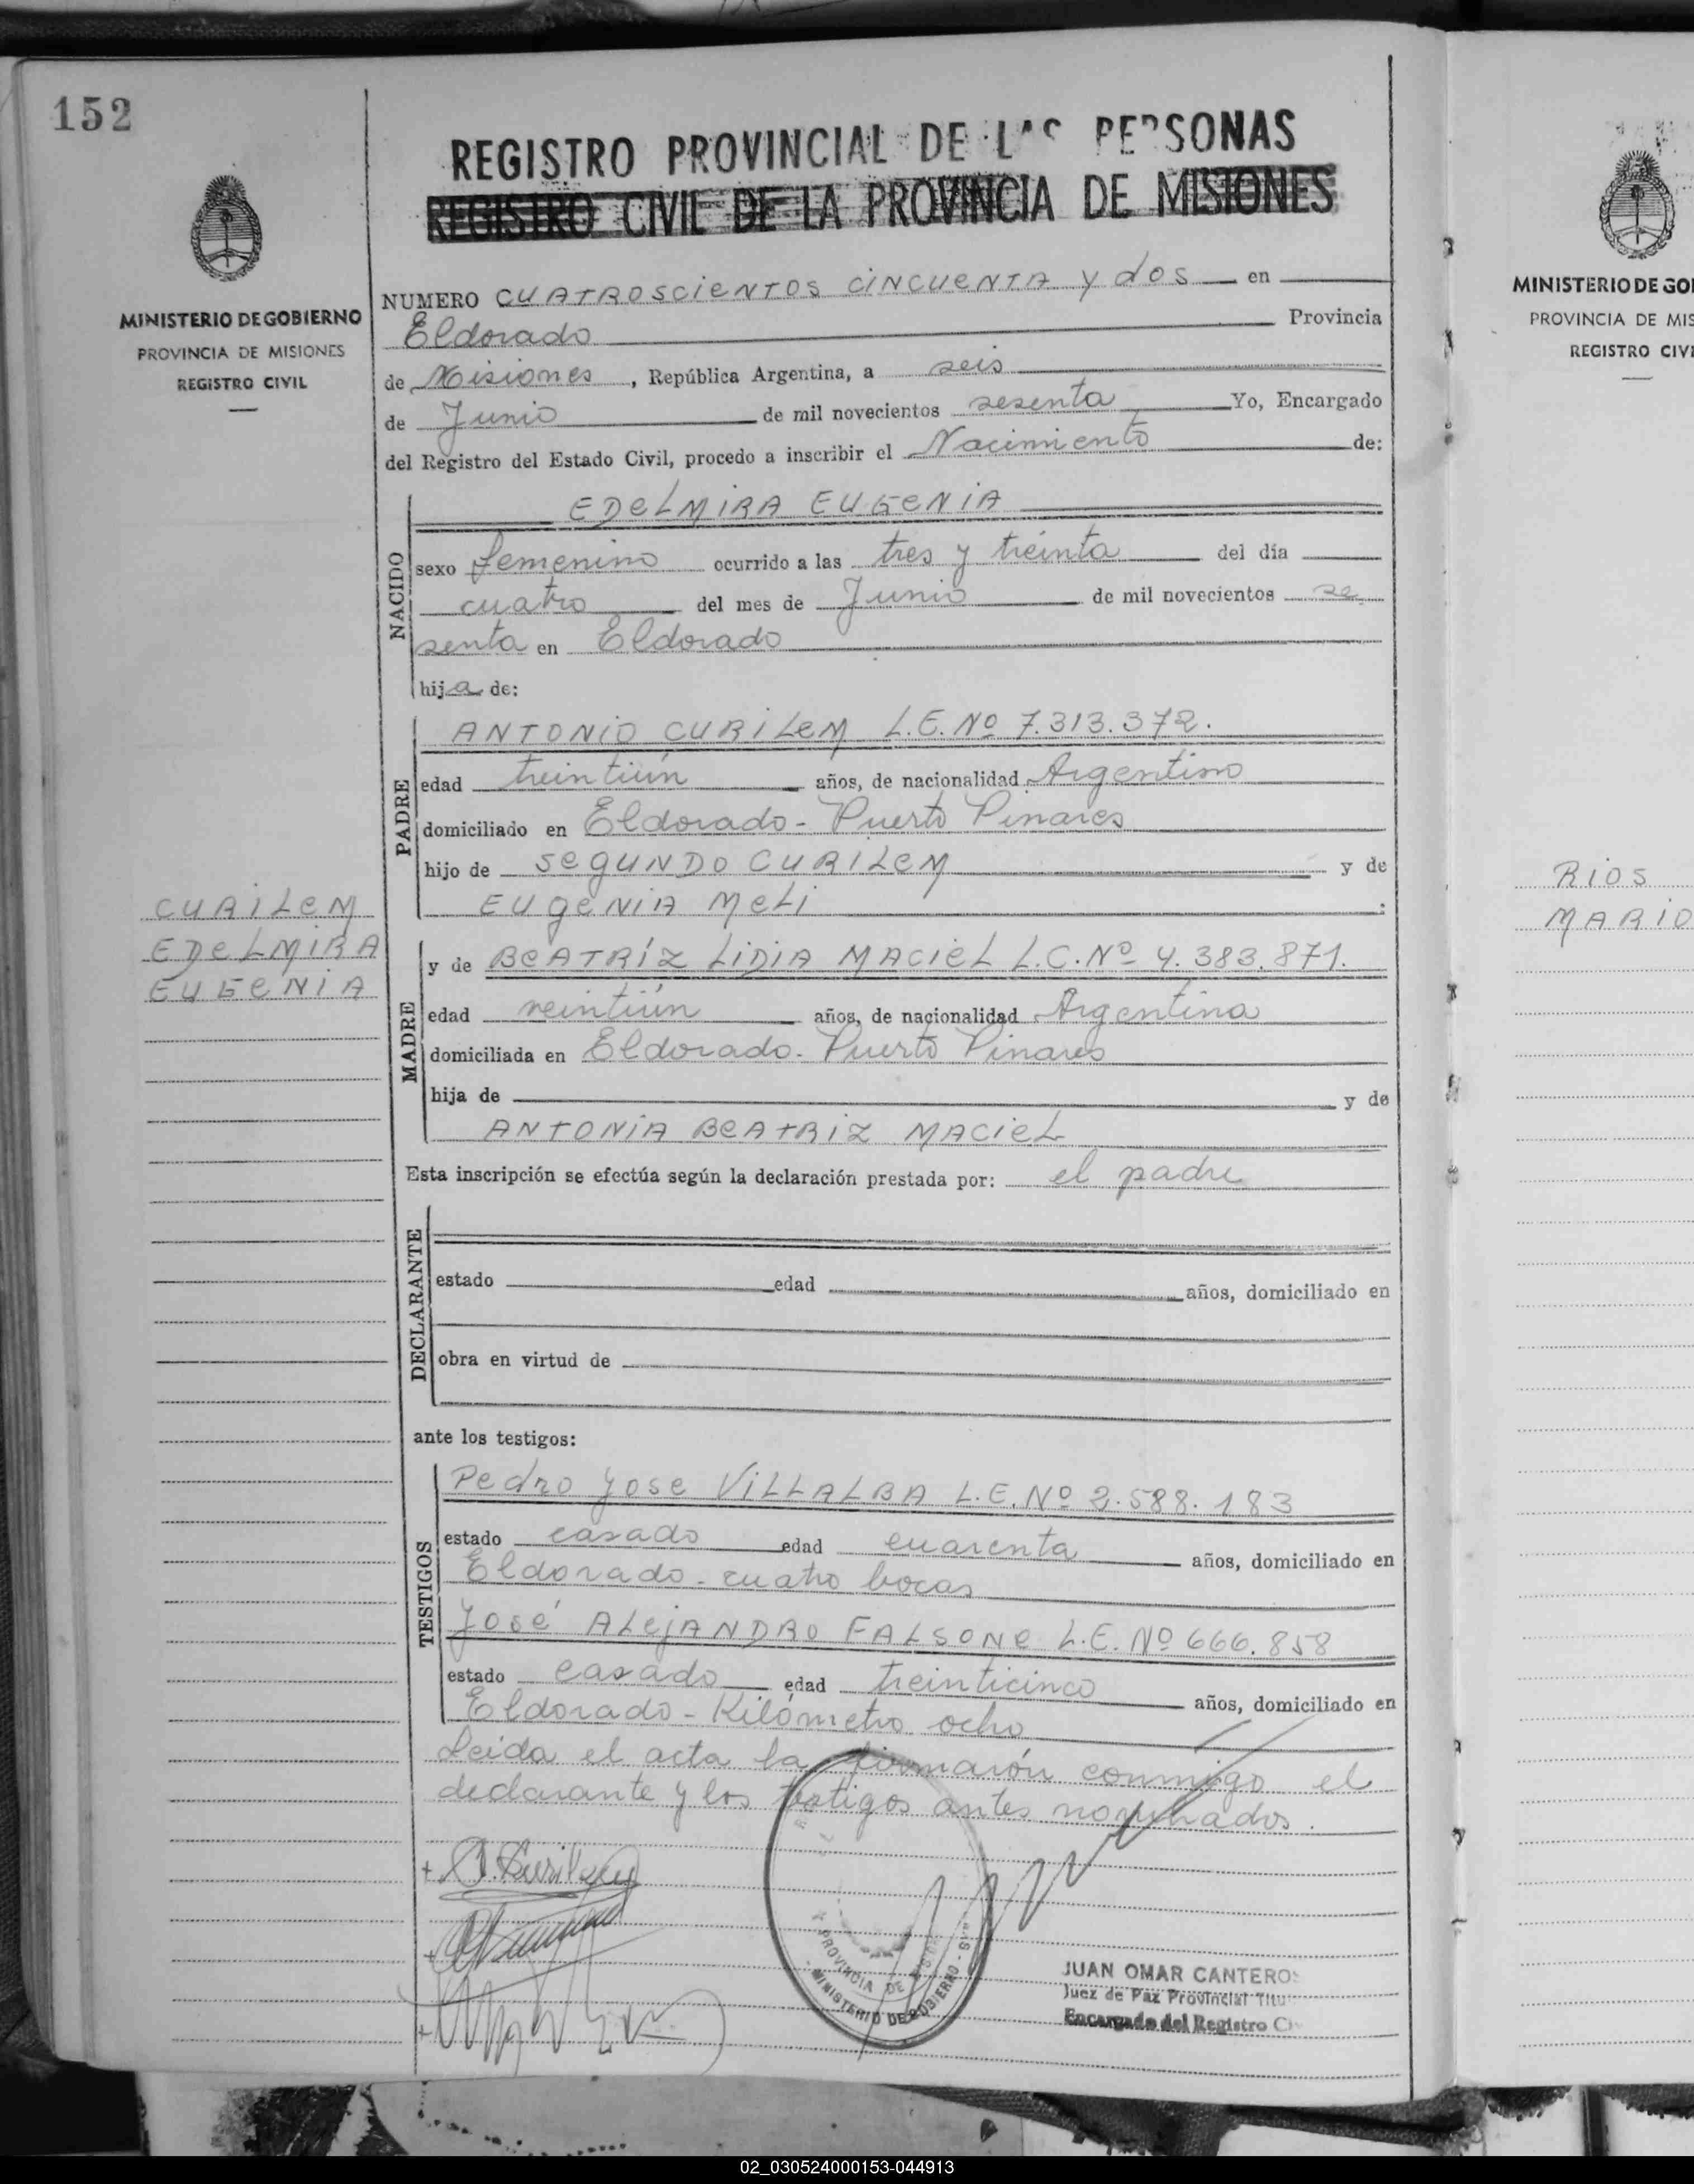 152
REGISTRO PROVINCIAL DE LAS PERSONAS
REGISTRO CIVIL DE LA PROVINCIA DE MISIONES
MINISTERIO DE GOBIERNO
PROVINCIA DE MISIONES
REGISTRO CIVIL
NUMERO CUATROSCIENTOS CINCUENTA Y DOS en
Eldorado Provincia
de Misiones, República Argentina, a seis
de Junio de mil novecientos sesenta Yo, Encargado
del Registro del Estado Civil, procedo a inscribir el Nacimiento de:
NACIDO
EDELMIRA EUGENIA
sexo femenino ocurrido a las tres y treinta del día
cuatro del mes de Junio de mil novecientos se
senta en Eldorado
hija de:
PADRE
ANTONIO CURILEM L.E. Nº 7.313.372.
edad treintiún años, de nacionalidad Argentino
domiciliado en Eldorado - Puerto Pinares
hijo de SEGUNDO CURILEM y de
EUGENIA MELI :
CURILEM
EDELMIRA
EUGENIA
MADRE
y de BEATRÍZ LIDIA MACIEL L.C. Nº 4.383.871.
edad veintiún años, de nacionalidad Argentina
domiciliada en Eldorado - Puerto Pinares
hija de y de
ANTONIA BEATRIZ MACIEL
Esta inscripción se efectúa según la declaración prestada por: el padre
DECLARANTE
estado edad años, domiciliado en
obra en virtud de
ante los testigos:
TESTIGOS
Pedro Jose VILLALBA L.E. Nº 2.588.183
estado casado edad cuarenta años, domiciliado en
Eldorado - cuatro bocas
José ALEJANDRO FALSONE L.E. Nº 666.858
estado casado edad treinticinco años, domiciliado en
Eldorado - Kilómetro ocho
Leida el acta la firmarón conmigo el
declarante y los testigos antes nombrados.
PROVINCIA DE
MINISTERIO DE GOBIERNO
JUAN OMAR CANTERO
Juez de Paz Provincial Titu
Encargado del Registro Ci
MINISTERIO DE GO
PROVINCIA DE MIS
REGISTRO CIVI
RIOS
MARIO
02_030524000153-044913